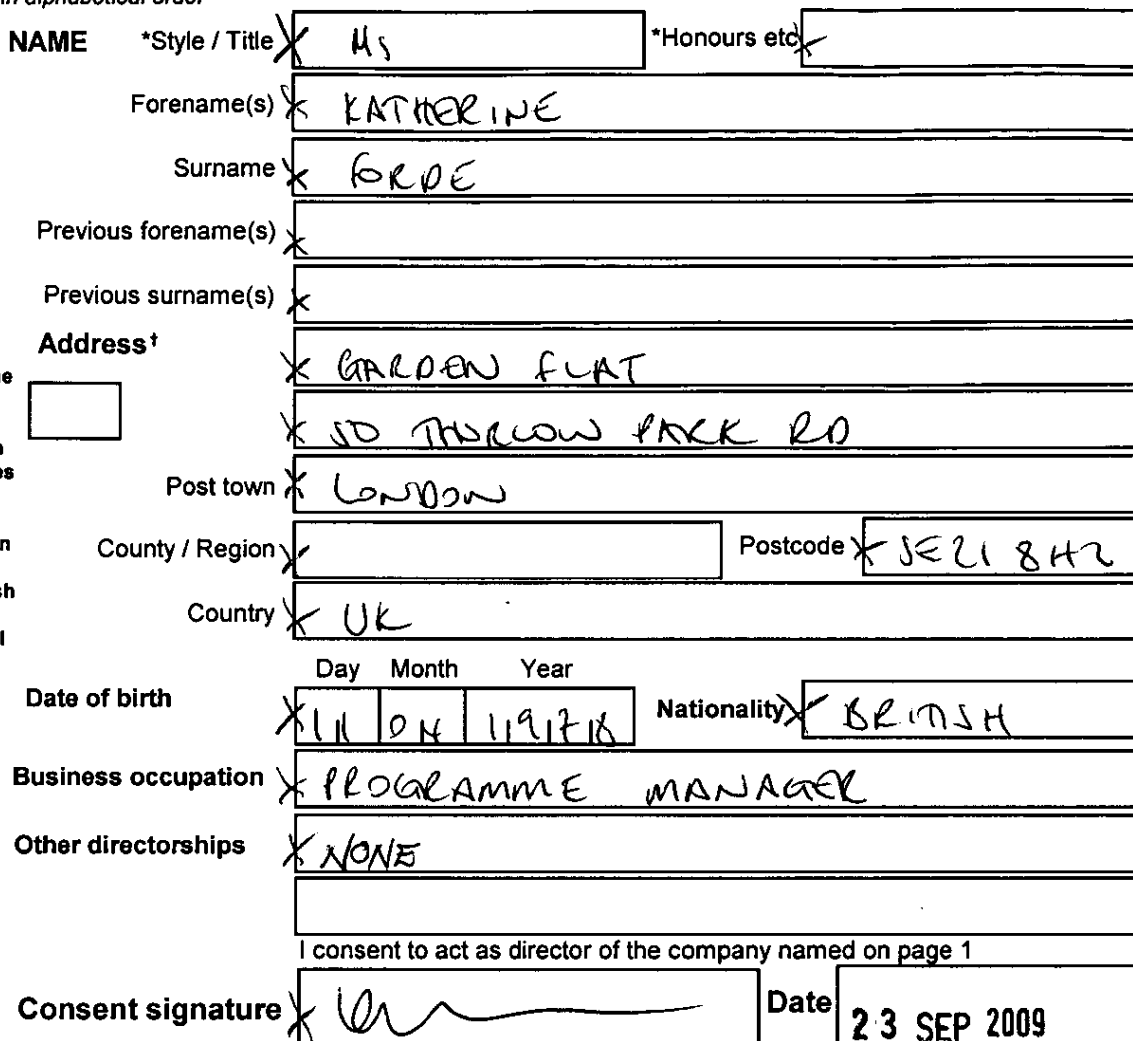 in alphabetical order
NAME *Style / Title Ms *Honours etc
Forename(s) KATHERINE
Surname FORDE
Previous forename(s)
Previous surname(s)
Address†
GARDEN FLAT
50 THURLOW PARK RD
Post town LONDON
County / Region Postcode SE21 8HZ
Country UK
Day Month Year
Date of birth 11 04 1978 Nationality BRITISH
Business occupation PROGRAMME MANAGER
Other directorships NONE
I consent to act as director of the company named on page 1
Consent signature Date 23 SEP 2009